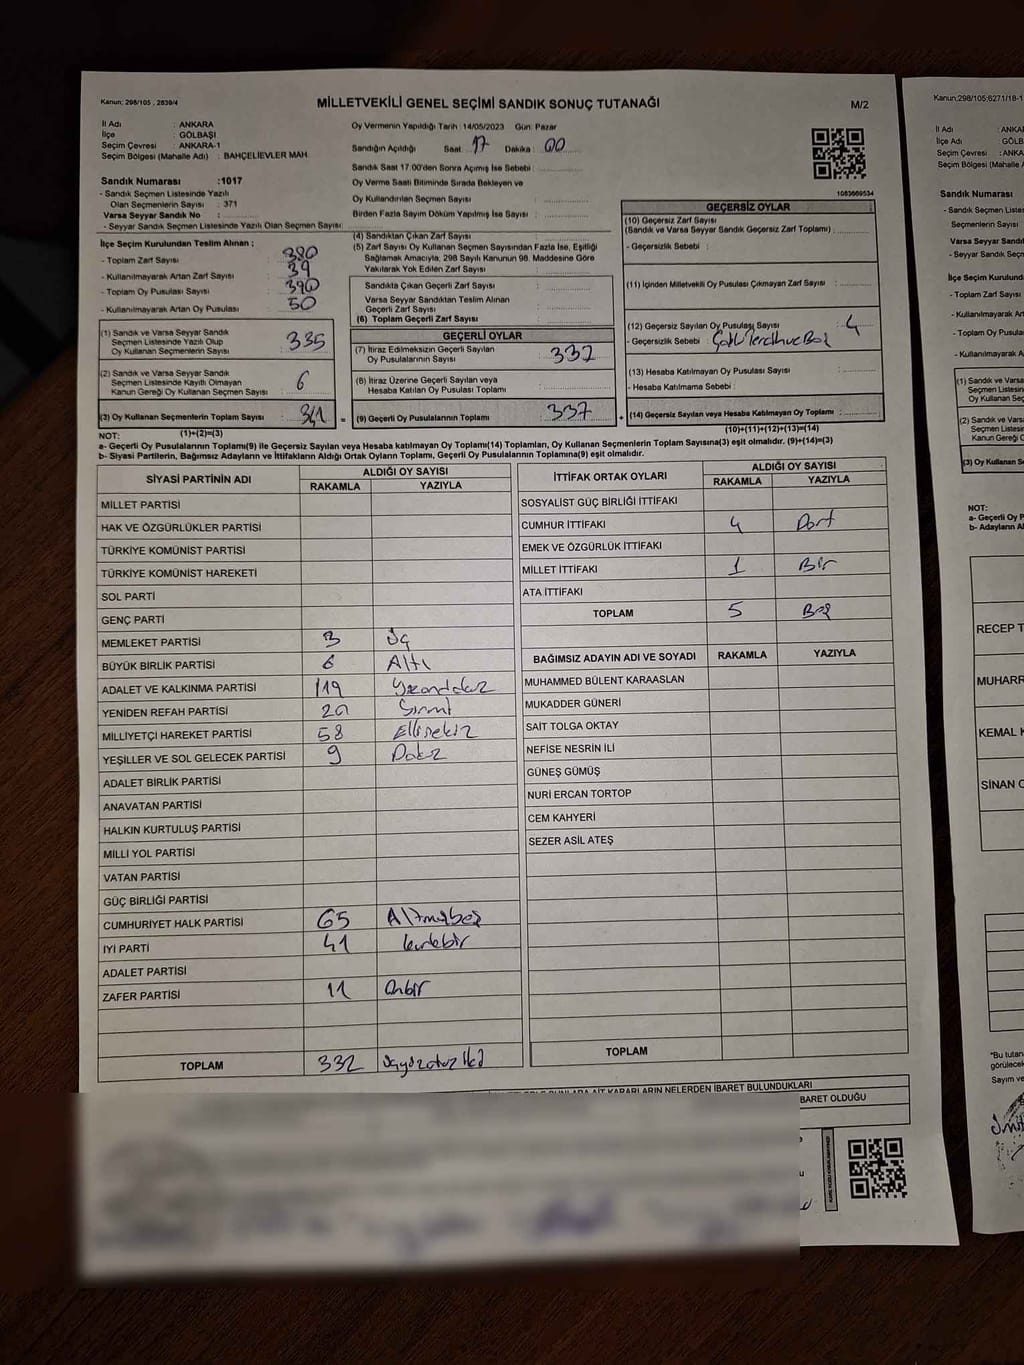 Kanun; 298/105 , 2839/4
MİLLETVEKİLİ GENEL SEÇİMİ SANDIK SONUÇ TUTANAĞI
M/2
İl Adı : ANKARA
İlçe : GÖLBAŞI
Seçim Çevresi : ANKARA-1
Seçim Bölgesi (Mahalle Adı) : BAHÇELİEVLER MAH.
Oy Vermenin Yapıldığı Tarih : 14/05/2023 Gün: Pazar
Sandığın Açıldığı Saat 17 Dakika 00
Sandık Saat 17:00'den Sonra Açımış İse Sebebi :
Oy Verme Saati Bitiminde Sırada Bekleyen ve
Oy Kullandırılan Seçmen Sayısı :
Birden Fazla Sayım Döküm Yapılmış İse Sayısı :
1083669534
Sandık Numarası :1017
- Sandık Seçmen Listesinde Yazılı
Olan Seçmenlerin Sayısı : 371
Varsa Seyyar Sandık No :
- Seyyar Sandık Seçmen Listesinde Yazılı Olan Seçmen Sayısı:
İlçe Seçim Kurulundan Teslim Alınan ;
- Toplam Zarf Sayısı : 380
- Kullanılmayarak Artan Zarf Sayısı : 39
- Toplam Oy Pusulası Sayısı : 390
- Kullanılmayarak Artan Oy Pusulası : 50
(1) Sandık ve Varsa Seyyar Sandık
Seçmen Listesinde Yazılı Olup
Oy Kullanan Seçmenlerin Sayısı : 335
(2) Sandık ve Varsa Seyyar Sandık
Seçmen Listesinde Kayıtlı Olmayan
Kanun Gereği Oy Kullanan Seçmen Sayısı : 6
(3) Oy Kullanan Seçmenlerin Toplam Sayısı : 341 =
(1)+(2)=(3)
(4) Sandıktan Çıkan Zarf Sayısı :
(5) Zarf Sayısı Oy Kullanan Seçmen Sayısından Fazla İse, Eşitliği
Sağlamak Amacıyla, 298 Sayılı Kanunun 98. Maddesine Göre
Yakılarak Yok Edilen Zarf Sayısı :
Sandıkta Çıkan Geçerli Zarf Sayısı :
Varsa Seyyar Sandıktan Teslim Alınan
Geçerli Zarf Sayısı :
(6) Toplam Geçerli Zarf Sayısı :
GEÇERLİ OYLAR
(7) İtiraz Edilmeksizin Geçerli Sayılan
Oy Pusulalarının Sayısı : 337
(8) İtiraz Üzerine Geçerli Sayılan veya
Hesaba Katılan Oy Pusulası Toplamı :
(9) Geçerli Oy Pusulalarının Toplamı : 337 +
GEÇERSİZ OYLAR
(10) Geçersiz Zarf Sayısı
(Sandık ve Varsa Seyyar Sandık Geçersiz Zarf Toplamı) :
- Geçersizlik Sebebi :
(11) İçinden Milletvekili Oy Pusulası Çıkmayan Zarf Sayısı :
(12) Geçersiz Sayılan Oy Pusulası Sayısı : 4
- Geçersizlik Sebebi :
(13) Hesaba Katılmayan Oy Pusulası Sayısı :
- Hesaba Katılmama Sebebi :
(14) Geçersiz Sayılan veya Hesaba Katılmayan Oy Toplamı :
(10)+(11)+(12)+(13)=(14)
NOT:
a- Geçerli Oy Pusulalarının Toplamı(9) ile Geçersiz Sayılan veya Hesaba katılmayan Oy Toplamı(14) Toplamları, Oy Kullanan Seçmenlerin Toplam Sayısına(3) eşit olmalıdır. (9)+(14)=(3)
b- Siyasi Partilerin, Bağımsız Adayların ve İttifakların Aldığı Ortak Oyların Toplamı, Geçerli Oy Pusulalarının Toplamına(9) eşit olmalıdır.
SİYASİ PARTİNİN ADI ALDIĞI OY SAYISI
RAKAMLA YAZIYLA
MİLLET PARTİSİ
HAK VE ÖZGÜRLÜKLER PARTİSİ
TÜRKİYE KOMÜNİST PARTİSİ
TÜRKİYE KOMÜNİST HAREKETİ
SOL PARTİ
GENÇ PARTİ
MEMLEKET PARTİSİ 3 Üç
BÜYÜK BİRLİK PARTİSİ 6 Altı
ADALET VE KALKINMA PARTİSİ 119 Yüzondokuz
YENİDEN REFAH PARTİSİ 20
MİLLİYETÇİ HAREKET PARTİSİ 58 Ellisekiz
YEŞİLLER VE SOL GELECEK PARTİSİ 9 Dokuz
ADALET BİRLİK PARTİSİ
ANAVATAN PARTİSİ
HALKIN KURTULUŞ PARTİSİ
MİLLİ YOL PARTİSİ
VATAN PARTİSİ
GÜÇ BİRLİĞİ PARTİSİ
CUMHURİYET HALK PARTİSİ 65 Altmışbeş
İYİ PARTİ 41 kırkbir
ADALET PARTİSİ
ZAFER PARTİSİ 11 Onbir
TOPLAM 332 Üçyüzotuz iki
İTTİFAK ORTAK OYLARI ALDIĞI OY SAYISI
RAKAMLA YAZIYLA
SOSYALİST GÜÇ BİRLİĞİ İTTİFAKI
CUMHUR İTTİFAKI 4 Dört
EMEK VE ÖZGÜRLÜK İTTİFAKI
MİLLET İTTİFAKI 1 Bir
ATA İTTİFAKI
TOPLAM 5 Beş
BAĞIMSIZ ADAYIN ADI VE SOYADI RAKAMLA YAZIYLA
MUHAMMED BÜLENT KARAASLAN
MUKADDER GÜNERİ
SAİT TOLGA OKTAY
NEFİSE NESRİN İLİ
GÜNEŞ GÜMÜŞ
NURİ ERCAN TORTOP
CEM KAHYERİ
SEZER ASİL ATEŞ
TOPLAM
KARARLARIN NELERDEN İBARET BULUNDUKLARI
BARET OLDUĞU
Kanun;298/105;6271/18-1
İl Adı : ANKA
İlçe : GÖLB
Seçim Çevresi : ANKA
Seçim Bölgesi (Mahalle
Sandık Numarası
- Sandık Seçmen Liste
Seçmenlerin Sayısı
Varsa Seyyar Sandı
- Seyyar Sandık Seçme
İlçe Seçim Kurulundan
- Toplam Zarf Sayısı
- Kullanılmayarak Arta
- Toplam Oy Pusulası
- Kullanılmayarak Arta
(1) Sandık ve Varsa
Seçmen Listesin
Oy Kullanan Seç
(2) Sandık ve Varsa
Seçmen Listesin
Kanun Gereği O
(3) Oy Kullanan Se
NOT:
a- Geçerli Oy P
b- Adayların Al
RECEP T
MUHARR
KEMAL K
SİNAN O
"Bu tutan
görülecek
Sayım ve